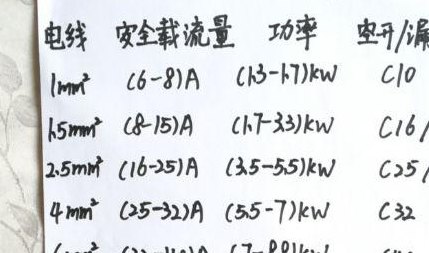 电线 安全载流量 功率 空开/漏
1mm² (6-8)A (1.3-1.7)kW C10
1.5mm² (8-15)A (1.7-3.3)kW C16/
2.5mm² (16-25)A (3.5-5.5)kW C25/
4mm² (25-32)A (5.5-7)kW C32